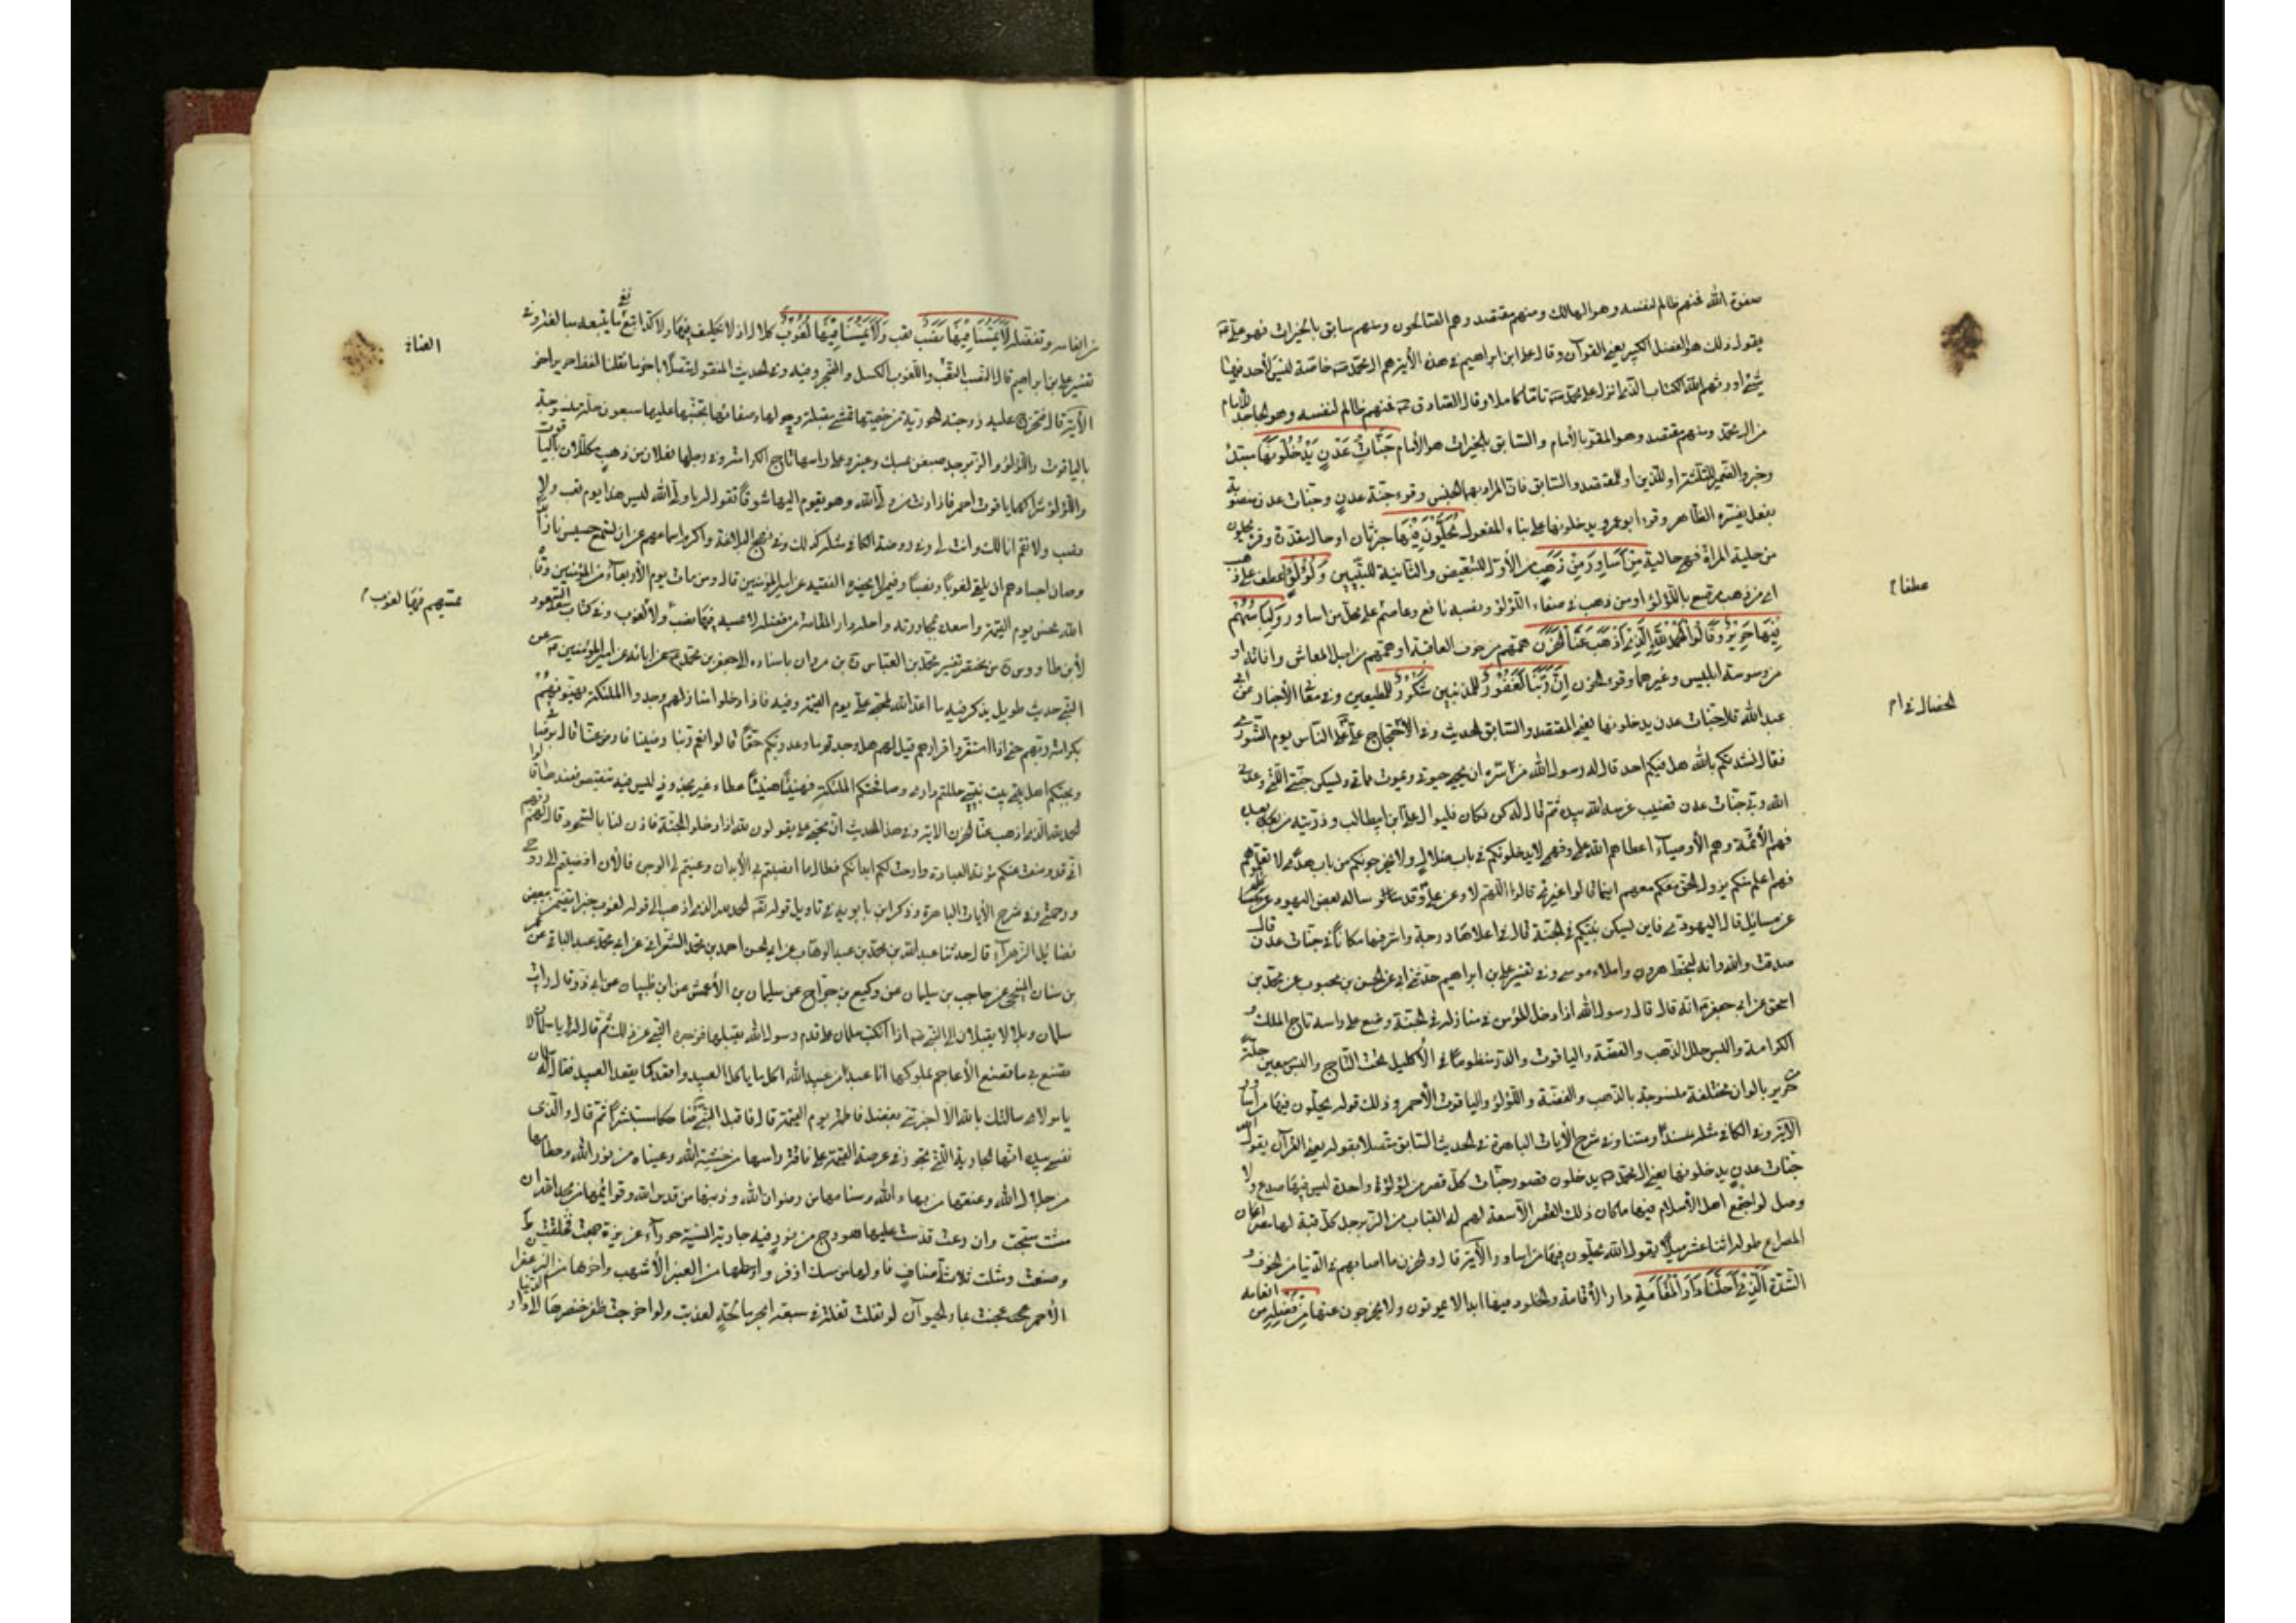 صفوة الله فمنهم ظالم لنفسه وهو الهالك ومنهم مقتصد وهم الصالحون ومنهم سابق بالخيرات فهو علي
يقول ذلك هو الفضل الكبير يعني القرآن وقال علي ابن ابراهيم في هذه الآية هم آل محمد خاصة ليس لأحد فيها
شيء اورثهم الله الكتاب الذي انزل على محمد تاما كاملا وقال الصادق فمنهم ظالم لنفسه وهو الجاحد للأمام
من آل محمد ومنهم مقتصد وهو المقر بالأمام والسابق بالخيرات هو الأمام جَنَّاتُ عَدْنٍ يَدْخُلُونَهَا مبتدأ
وخبر والضمير للثلثة او للذين او للمقتصد والسابق فان المراد بهما الجنس وقرء جنة عدن وجنات عدن منصوبة
بفعل يفسره الظاهر وقرء ابو عمرو يدخلونها على بناء المفعول يُحَلَّوْنَ فِيهَا خبر ثان او حال مقدرة وقرء يحلون
من حلية المرأة فهي حالية مِنْ أَسَاوِرَ مِنْ ذَهَبٍ من الأولى للتبعيض والثانية للتبيين وَلُؤْلُؤًا عطف على ذهب
اي من ذهب مرصع باللؤلؤ او من ذهب في صفاء اللؤلؤ ونصبه نافع وعاصم على محل من اساور وَلِبَاسُهُمْ
فِيهَا حَرِيرٌ وَقَالُوا الْحَمْدُ لِلَّهِ الَّذِي أَذْهَبَ عَنَّا الْحَزَنَ همهم من خوف العاقبة او همهم من اجل المعاش وآفاته او
من وسوسة ابليس وغيرها وقرء الحزن إِنَّ رَبَّنَا لَغَفُورٌ للمذنبين شَكُورٌ للمطيعين وفي معاني الأخبار عن ابي
عبد الله قال جنات عدن يدخلونها يعني المقتصد والسابق الحديث وفي الأحتجاج عن علي الناس يوم الشورى
فقال نشدتكم بالله هل فيكم احد قال له رسول الله من سره ان يحيي حيوتي ويموت مماتي ويسكن جنتي التي وعدني
الله ربي جنات عدن قضيب غرسه الله بيده ثم قال له كن فكان فليوال علي ابن ابيطالب وذريته من بعده
فهم الأئمة وهم الأوصياء اعطاهم الله علمي وفهمي لا يدخلونكم في باب ضلال ولا يخرجونكم من باب هدى لا تعلموهم
فهم اعلم منكم يزول الحق معهم اينما زالوا غيري قالوا اللهم لا وعن علي وقد ساله بعض اليهود
عن مسائل قال اليهودي فاين يسكن نبيكم في الجنة قال في اعلاها درجة واشرفها مكانا في جنات عدن قال
صدقت والله وانه لبخط هرون واملاء موسى وفي تفسير علي بن ابراهيم حدثني ابي عن الحسن بن محبوب عن محمد بن
اسحق عن ابي جعفر انه قال قال رسول الله اذا دخل المؤمن في منازله في الجنة وضع على راسه تاج الملك و
الكرامة والبس حلل الذهب والفضة والياقوت والدر منظوما في الأكليل تحت التاج والبس سبعين حلة
حرير بالوان مختلفة منسوجة بالذهب والفضة واللؤلؤ والياقوت الأحمر وذلك قوله يحلون فيها من اساور
الاية وفي الكافي مثله سندا ومتنا وفي شرح الآيات الباهرة في الحديث السابق متصلا بقوله يعني القرآن يقول الله
جنات عدن يدخلونها يعني آل محمد يدخلون قصور جنات كل قصر من لؤلؤة واحدة ليس فيها صدع ولا
وصل لو اجتمع اهل الأسلام فيها ما كان ذلك القصر الا سعة لهم له القباب من الزبرجد كل قبة لها مصراعان
المصراع طوله اثنا عشر ميلا يقول الله يحلون فيها من اساور الآية قال والحزن ما اصابهم في الدنيا من الخوف و
الشدة الَّذِي أَحَلَّنَا دَارَ الْمُقَامَةِ دار الأقامة والخلود فيها ابدا لا يموتون ولا يخرجون عنها مِنْ فَضْلِهِ من انعامه
عطفا
الخصال
وتفضله لَا يَمَسُّنَا فِيهَا نَصَبٌ تعب وَلَا يَمَسُّنَا فِيهَا لُغُوبٌ كلال اذ لا تكليف فيها ولا كد اتبع نفي
تفسير علي بن ابراهيم قال النصب التعب واللغوب الكسل والضجر وفيه وفي الحديث المنقول متصلا باخر ما نقلنا
الآية قال فتخرج عليه زوجته الحورية من خيمتها تمشي مقبلة وحولها وصفائها عليها سبعون حلة منسوجة
بالياقوت واللؤلؤ والزبرجد صبغن بمسك وعنبر وعلى راسها تاج الكرامة وفي رجلها نعلان من ذهب مكللان بالياقوت
واللؤلؤ شراكهما ياقوت احمر فاذا دنت من ولي الله وهو يقوم اليها شوقا تقول له يا ولي الله ليس هذا يوم تعب ولا
نصب ولا تقم انا لك وانت لي وفي روضة الكافي مثله كذلك وفي نهج البلاغة واكرم اسماعهم عن ان تسمع حسيس نار
وصان اجسادهم ان يلقى لغوبا ونصبا وفيما لا يحضره الفقيه عن امير المؤمنين قال ومن مات يوم الأربعاء من المؤمنين وقاه
الله نحس يوم القيمة واسعده بمجاورته واحله دار المقامة من فضله لا يمسه فيها نصب ولا لغوب وفي كتاب سعد السعود
لأبن طاووس من مختصر تفسير محمد بن العباس بن مروان باسناده الى جعفر بن محمد عن ابائه عن امير المؤمنين عن
النبي حديث طويل يذكر فيه ما اعد الله لمحبي علي يوم القيمة وفيه فاذا دخلوا منازلهم وجدوا الملئكة يهنئونهم
بكرامة ربهم حتى اذا استقروا قرارهم قيل لهم هل وجدتم ما وعد ربكم حقا قالوا نعم ربنا رضينا فارض عنا قال برضاي
وبحبكم اهل بيت نبيي حللتم داري وصافحتكم الملئكة فهنيئا هنيئا عطاء غير مجذوذ ليس فيه تنغيص فعندها قالوا
الحمد لله الذي اذهب عنا الحزن الاية وفي هذا الحديث ان محبي علي يقولون لله اذا دخلوا الجنة فاذن لنا بالسجود قال لهم ربهم
اني قد وضعت عنكم مؤنة العبادة وارحت لكم ابدانكم فطال ما انصبتم لي الأبدان وعنيتم لي الوجوه فالأن افضيتم الى روحي
ورحمتي وفي شرح الأيات الباهرة وذكر ابن بابويه في تاويل قوله الحمد لله الذي اذهب الى قوله لغوب خبرا يتضمن بعض
فضائل الزهراء قال حدثنا عبد الله بن محمد بن عبد الوهاب عن ابي الحسن احمد بن محمد الشعراني عن ابي محمد عبد الباقي عن عمر
بن سنان المنبجي عن حاجب بن سليمان عن وكيع بن جراح عن سليمان بن الأعمش عن ابن ظبيان عن ابي ذر قال رايت
سلمان وبلالا يقبلان الى النبي اذا انكب سلمان على قدم رسول الله يقبلها فزجره النبي عن ذلك ثم قال له يا سلمان لا
تصنع بي ما تصنع الأعاجم بملوكها انا عبد من عبيد الله اكل ما ياكل العبيد واقعد كما يقعد العبيد فقال له سلمان
يا مولاي سالتك بالله الا اخبرتني بفضل فاطمة يوم القيمة قال فاقبل النبي ضاحكا مستبشرا ثم قال والذي
نفسي بيده انها الجارية التي تجوز في عرصة القيمة على ناقة راسها من خشية الله وعيناها من نور الله وخطامها
من جلال الله وعنقها من بهاء الله وسنامها من رضوان الله وذنبها من قدس الله وقوائمها من مجد الله ان
مشت سبحت وان رغت قدست عليها هودج من نور فيه جارية انسية حوراء عزيزة جمعت فخلقت
وصنعت ومثلت ثلاثة اصناف فاولها من مسك اذفر واوسطها من العنبر الأشهب واخرها من الزعفران
الأحمر عجنت بماء الحيوان لو تفلت تفلة في سبعة ابحر مالحة لعذبت ولو اخرجت ظفر خنصرها الى دار الدنيا
يمسهم فيها لغوب